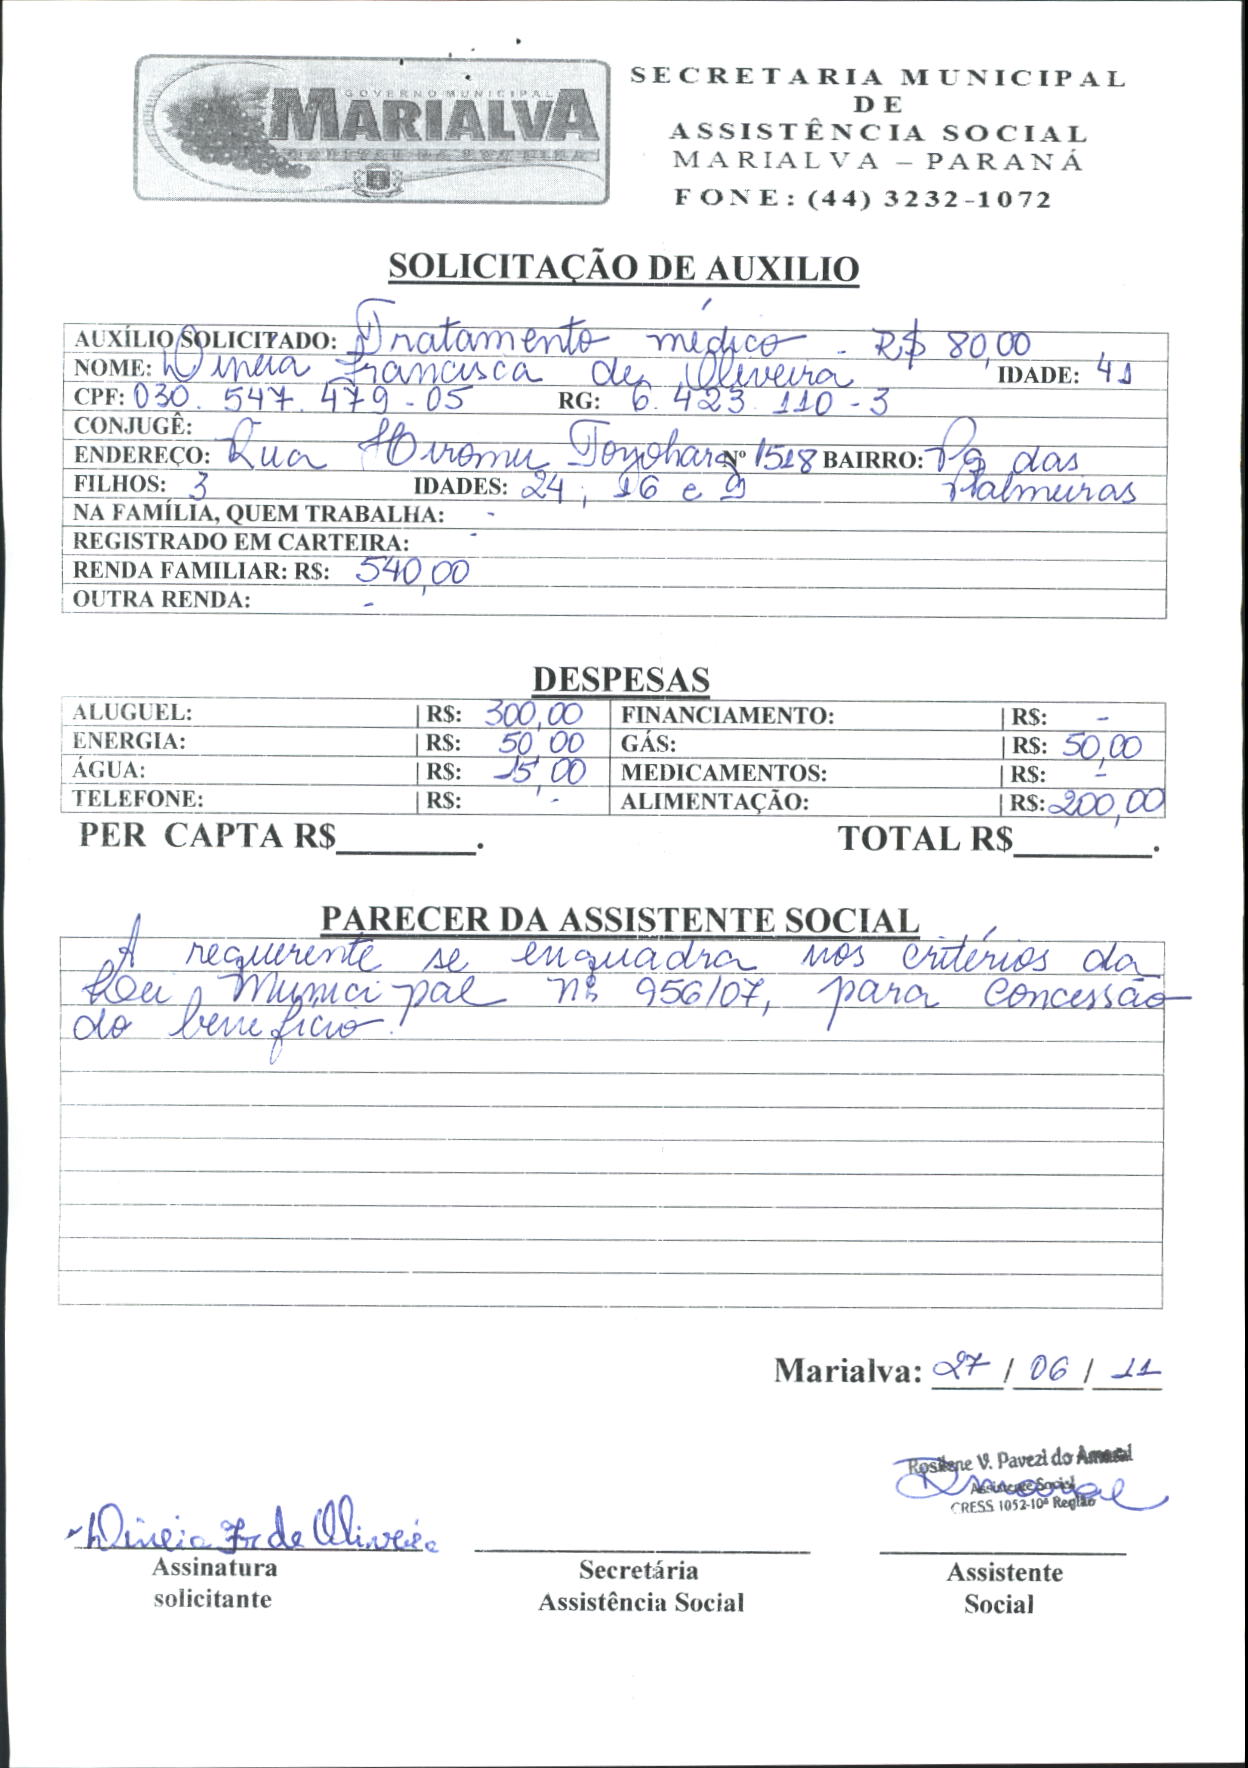 GOVERNO MUNICIPAL
MARIALVA
SECRETARIA MUNICIPAL
DE
ASSISTÊNCIA SOCIAL
MARIALVA – PARANÁ
FONE: (44) 3232-1072
SOLICITAÇÃO DE AUXILIO
AUXÍLIO SOLICITADO: Tratamento médico - R$ 80,00
NOME: Dineia Francisca de Oliveira IDADE: 41
CPF: 030.547.479-05 RG: 6.423.110-3
CONJUGÊ:
ENDEREÇO: Rua Hiromu Toyohara Nº 1518 BAIRRO: Pq das
FILHOS: 3 IDADES: 24, 16 e 9 Palmeiras
NA FAMÍLIA, QUEM TRABALHA: -
REGISTRADO EM CARTEIRA: -
RENDA FAMILIAR: R$: 540,00
OUTRA RENDA: -
DESPESAS
ALUGUEL: | R$: 300,00 FINANCIAMENTO: | R$: -
ENERGIA: | R$: 50,00 GÁS: | R$: 50,00
ÁGUA: | R$: 15,00 MEDICAMENTOS: | R$: -
TELEFONE: | R$: - ALIMENTAÇÃO: | R$: 200,00
PER CAPTA R$________. TOTAL R$________.
PARECER DA ASSISTENTE SOCIAL
A requerente se enquadra nos critérios da
Lei Municipal nº 956/07, para concessão
do benefício.
Marialva: 27 / 06 / 11
Rosilene V. Pavezi do Amaral
Assistente Social
CRESS 1052-10ª Região
Dineia Fr de Oliveira
Assinatura Secretária Assistente
solicitante Assistência Social Social